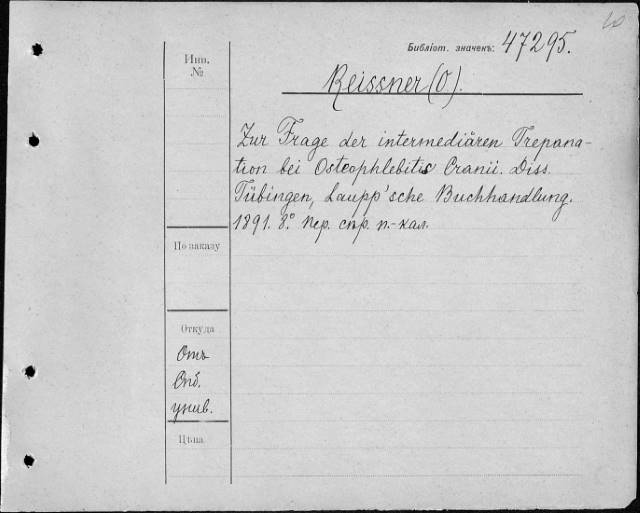 Библіот. значекъ: 47295.
Инв. №
Reissner (O).
Zur Frage der intermediären Trepana-
tion bei Osteophlebitis Cranii. Diss.
Tübingen, Laupp'sche Buchhandlung.
1891. 8.° Пер. спр. п.-кал.
По заказу
Откуда
Отъ
Спб.
унив.
Цѣна